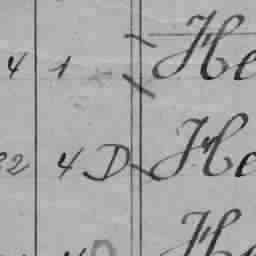 4 1 He
32 4 D He
H